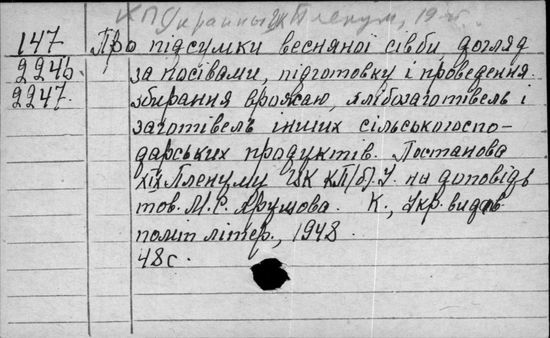 КП Украины ЦК Пленум, 19-й.
147 Про підсумки весняної сівби, догляд
2246 за посівами, підготовку і проведення
2247 збирання врожаю, хлібозаготівель і
заготівель інших сільськогоспо-
дарських продуктів. Постанова
XIX Пленуму ЦК КП/б/У. на доповідь
тов. М. С. Хрущова. К., Укр. видав
політ літер., 1948.
48 с.